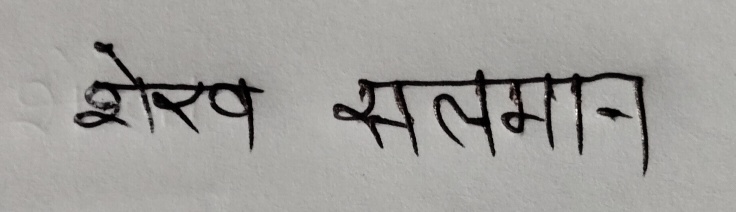 शेख सलमान